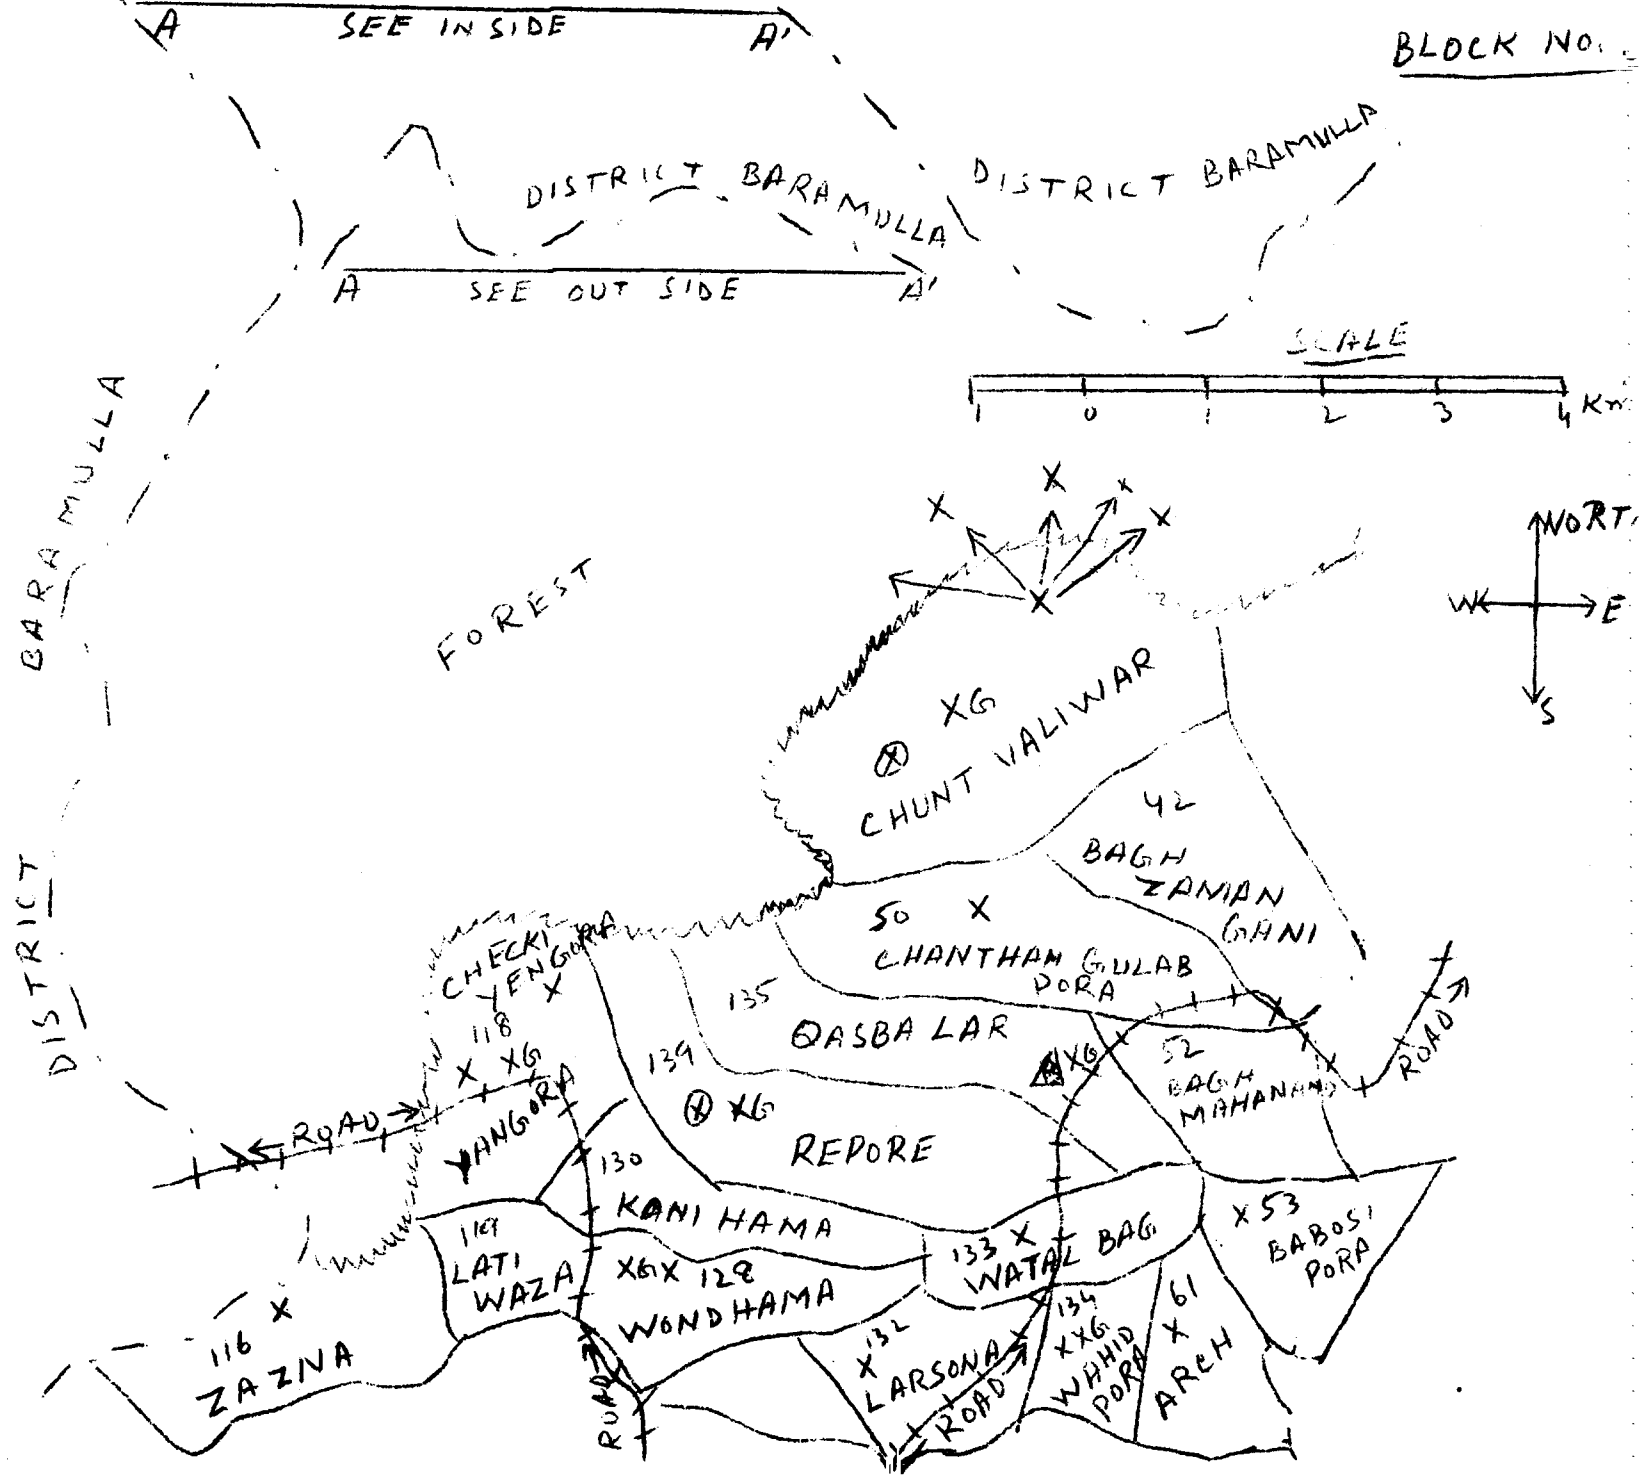 A SEE IN SIDE A'
BLOCK NO.
DISTRICT BARAMULLA
DISTRICT BARAMULLA
A SEE OUT SIDE A'
SCALE
1 0 1 2 3 4 Km
DISTRICT BARAMULLA
FOREST
X X X X
X
NORT
W E
S
XG
X
CHUNT VALIWAR
42
BAGH
ZANIAN
GANI
50 X
CHANTHAM GULAB
PORA
CHECKI
YENGORA
X
118
X XG
YANGORA
135
QASBA LAR
XG
52
BAGH
MAHANAND
ROAD
139
X XG
REPORE
ROAD
130
KANI HAMA
119
LATI
WAZA
XGX 128
WONDHAMA
133 X
WATAL BAG
X 53
BABOSI
PORA
X
116
ZAZNA
ROAD
X 132
LARSONA
ROAD
134
X XG
WAHID
PORA
61
X
ARCH